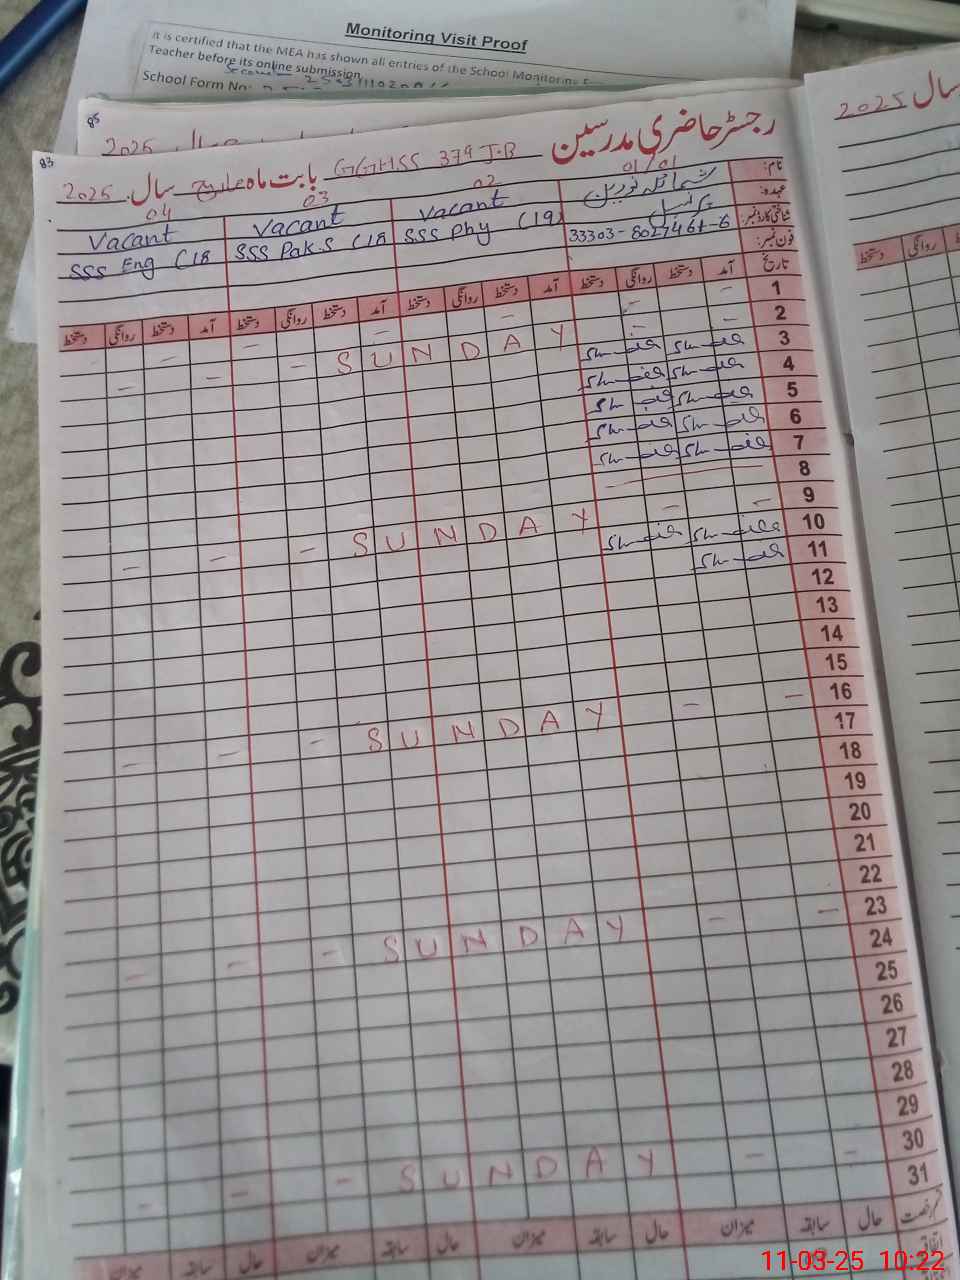 Monitoring Visit Proof
It is certified that the MEA has shown all entries of the School Monitoring
Teacher before its online submission.
School Form No:
85
2025
سال 2025
83
رجسٹر حاضری مدرسین
GGHSS 379 J.B بابت ماہ مارچ سال 2025
نام: شمائلہ نورین 01/01
02 Vacant
03 Vacant
04 Vacant
عہدہ: پرنسپل
SSS Phy (19)
SSS Pak.S (18
SSS Eng (18
شناختی کارڈ نمبر: 33303-8027461-6
فون نمبر:
تاریخ آمد دستخط روانگی دستخط آمد دستخط روانگی دستخط آمد دستخط روانگی دستخط آمد دستخط روانگی دستخط
روانگی دستخط
1
2 - - SUNDAY - - -
3
4
5
6
7
8
9 - - SUNDAY - - -
10
11
12
13
14
15
16 - - SUNDAY - - -
17
18
19
20
21
22
23 - - SUNDAY - - -
24
25
26
27
28
29
30 - - SUNDAY - - -
31
حال سابقہ میزان حال سابقہ میزان حال سابقہ میزان حال سابقہ میزان
اتفاقی
11-03-25 10:22